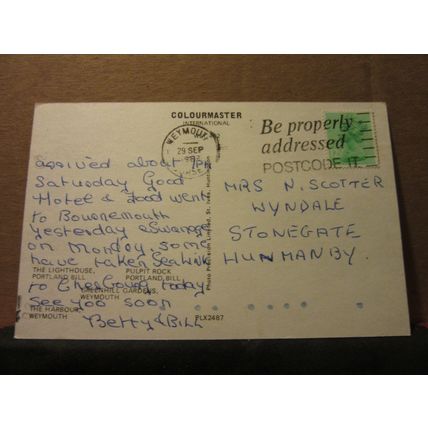 COLOURMASTER
INTERNATIONAL
WEYMOUTH
29 SEP
Be properly
addressed
POSTCODE IT
arrived about
Saturday Good
Hotel & food went
to Bournemouth
yesterday & Swanage
on Monday, some
have taken
to today
see you soon
Betty & BILL
MRS N. SCOTTER
WYNDALE
STONEGATE
HUNMANBY.
THE LIGHTHOUSE,
PORTLAND BILL
PULPIT ROCK
PORTLAND BILL
GREENHILL GARDENS,
WEYMOUTH
THE HARBOUR,
WEYMOUTH
PLX2487
Photo Precision Limited, St. Ives, Huntingdon